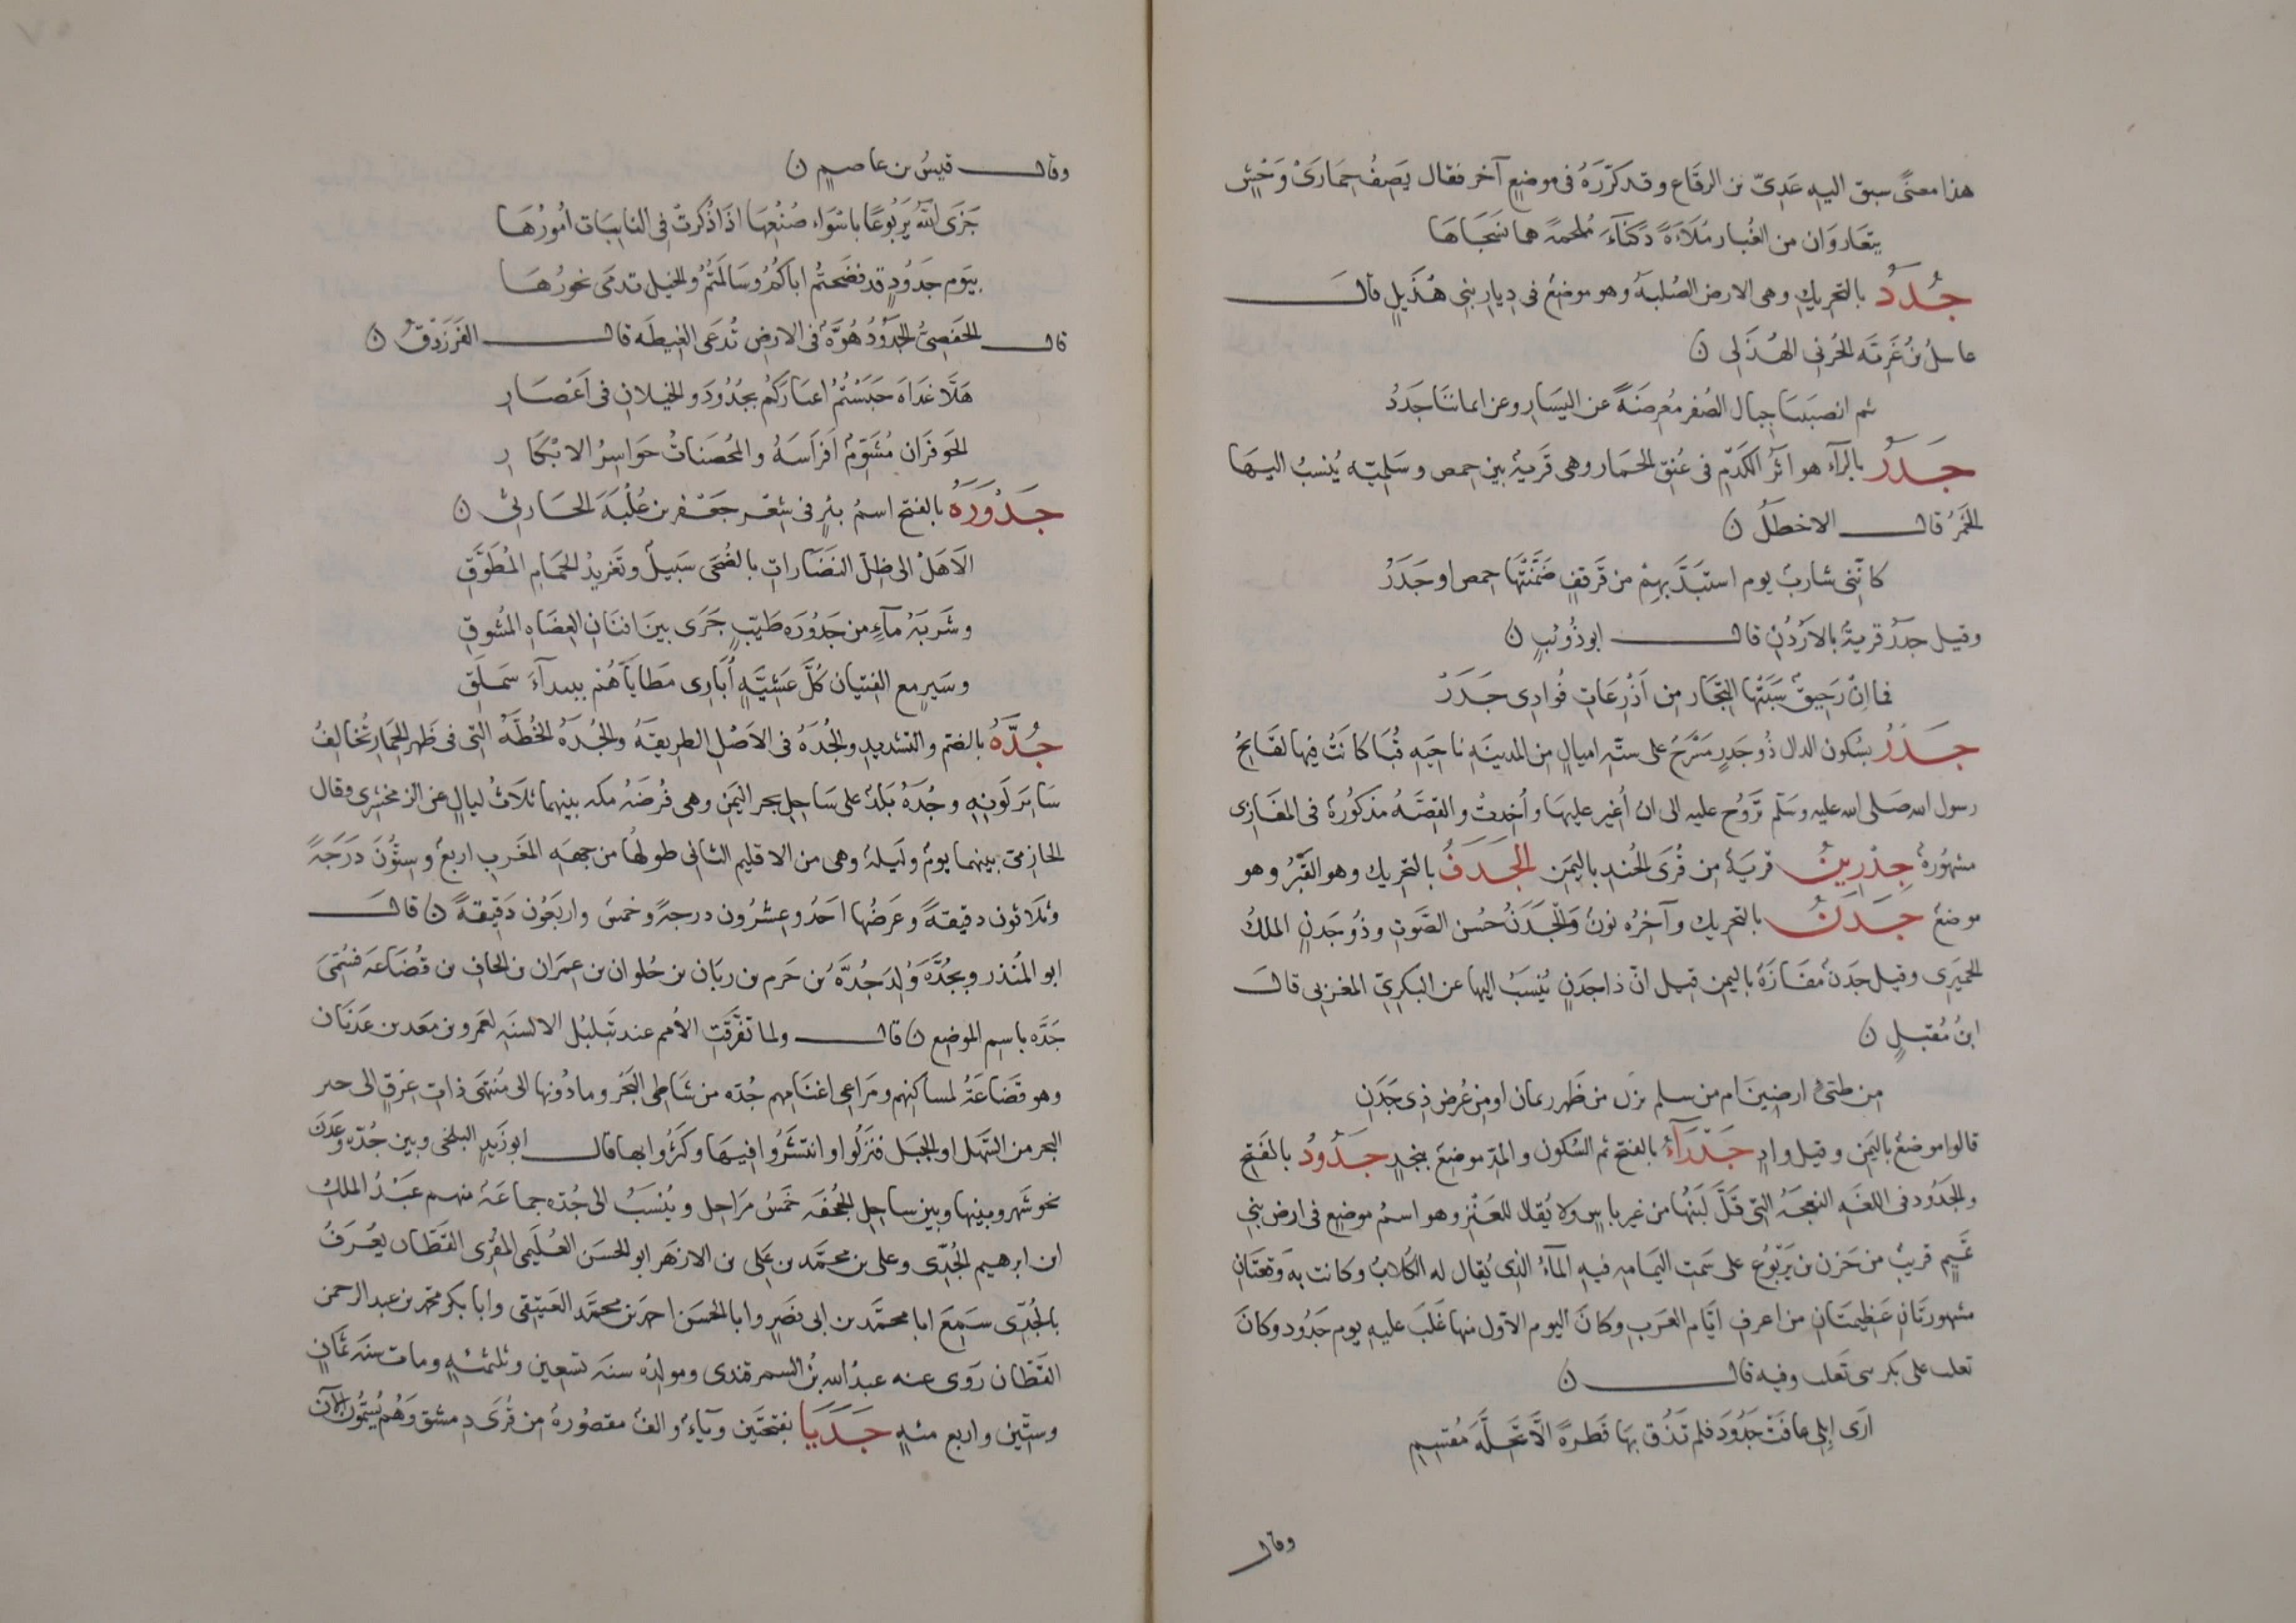 هذا معنىً سبق اليه عَدِىّ بن الرقاع وقد كرّرَهُ فى موضعٍ آخر فقال يَصِفُ حِمَارَىْ وَحْشٍ
يتعَاوَران من الغُبار مُلَاءَةً دَكنَآءَ مُلحمةً هما نسَجَاهَا
جُدَدُ بالتحريكِ وهى الارض الصُلبة وهو موضعٌ فى دِيار بنى هُذَيلٍ قالَ
عاسلُ بنُ غَزيَّه الجُربى الهُذَلى ن
ثم انصبَبنا جبال الصُفر مُعرِضَةً عن اليَسَار وعن ايماننا جَدَدُ
جَدَرُ بالرآء هو اثرُ الكَدْم فى عُنق الحمار وهى قَريةٌ بين حمص وسَلميّه يُنسبُ اليهَا
الخمرُ قال الاخطلُ ن
كانّنى شاربٌ يوم استُبِدَّ بهِمْ من قَرقفٍ ضَمّنتْهَا حمص او جَدَرُ
وقيل جدَرُ قريةٌ بالاُردُنِ قال ابو ذُويْبٍ ن
فما اِنْ رَحِيقٌ سَبَتْها التجَار من اَذْرِعَاتٍ فوادِى جَدَرْ
جَدْرُ بسُكون الدال ذُو جَدرٍ مَسْرَحٌ على ستّه اميالٍ من المدينَةِ ناحِيَه قُبَا كانَتْ فيها لقَايحُ
رسول الله صَلى الله عليه وسَلّم تَرُوحُ عليه الى ان اُغير عليهَا واُخِذتْ والقِصَّهُ مذكُورةٌ فى المغَازى
مشهُورةٌ جِدْرِينُ قريَةٌ من قُرَى الجُند باليمَن الجَدَفُ بالتحريك وهو القَبْرُ وهو
موضعٌ جَدَنُ بالتحريك وآخِرُه نونٌ وَالجَدَنُ حُسن الصَّوتِ وذُو جَدنٍ الملكُ
الحميَرِى وقيل جَدَنٌ مفَازَةٌ باليمن قيل انّ ذا جدَنٍ يُنْسَبُ اليها عن البكرِىّ المغربى قالَ
ابنُ مُقبلٍ ن
من طىّ ارضينَ ام من سلم نزل من ظَهر ريمان او من عُرض ذِى جَدَنِ
قالوا موضعٌ باليَمَن وقيل وادٍ جَدْرَآءُ بالفتح ثم السُكون والمدّ موضعٌ بنجدٍ جَدُودُ بالفَتح
والجَدُود فى اللغَهِ النعجَةُ التى قَلّ لبنُها من غير باسٍ ولا يُقال للعَنْزِ وهو اسمُ موضعٍ فى ارض بنى
تَميمٍ قريبٌ من حَزن بن يَرْبُوع على سَمتِ اليَمامه فيهِ المآءُ الذِى يُقال له الكُلابُ وكانت به وَقعتَانِ
مشهورتَانِ عَظيمتَانِ من اعرف ايَّام العَرب وكانَ اليوم الاوّل منها غَلبَ عليهِ يوم جَدُود وكانَ
تعلب على بَكر بنى تَعلب وفيه قال ن
ارَى اِبِلى عافَتْ جَدُودَ فلم تَذُق بهَا قَطرةً الَّا تَحِلَّةَ مُقسِمِ
وقال
وقال قيسُ بن عاصمٍ ن
جَزَى اللهُ يَرْبُوعًا باسْوَاء صُنْعِهَا اذَا ذُكرتْ فى النايبَات امُورُهَا
بيَوم جَدُودٍ قد فضَحتُم اباكُمُ وسَالمتُمُ والخيل تدمَى نحُورُهَا
قال الحَفصِىّ الجَدُودُ هُوَّةٌ فى الارض تُدعَى الغبيطَه قال الفَرَزدَقُ ن
هَلّا غدَاةَ حَبَسْتُمُ اعيَارَكُم بجُدُودَ والخيلان فى اَعْصَارِ
الحَوفَزان مُسَوّمٌ اَفرَاسَهُ والمُحصَناتُ حَواسِرُ الابْكَارِ
جَدُورَةُ بالفتح اسمُ بئرٍ فى شعْر جَعْفر بن عُلْبَةَ الحَارِثى ن
الَاهَلْ الى ظلّ النَضَاراتِ بالضُحَى سَبيلٌ وتَغريدُ الحَمَامِ المُطَوَّقِ
وشَربَةُ مآءٍ من جَدُورَه طَيّبٍ جَرَى بينَ افنانِ العضَاه المُسَوقِ
وسَيرٍ مع الفتيان كلَّ عَشيّةٍ اُبَارِى مَطَايَاهُم ببيدآءَ سَملَقِ
جُدَّةُ بالضم والتشديدِ والجُدةُ فى الاَصْل الطريقَةُ والجُدَةُ الخُطّةُ التى فى ظَهر الحِمَار تُخالِفُ
سَايرَ لَونِهِ وجُدَةُ بَلدٌ على سَاحِل بحر اليمَن وهى فُرضَةُ مكه بينهما ثلاثُ ليالٍ عن الزمخشرى وقال
الحازمىّ بينهما يومٌ وليلةٌ وهى من الاقليم الثانى طولُها من جهة المغَرب اربعٌ وسِتُّونَ دَرَجةً
وثلاثون دقيقةً وعَرضُها احَدُ وعِشرُون درجةً وخمسٌ واربَعُون دَقيقةً ن قالَ
ابو المُنذر وبجُدَّه وُلِدَ جُدَّه بن حَرم بن ربَان بن حُلوان بن عِمرَان بن الحاف بن قُضَاعَة فسُمّىَ
جُدَّه باسم الموضع ن قال ولما تفرّقتِ الاُمم عند تَبلبُل الالسنَه لعَمرو بن مَعَد بن عَدنَان
وهو قضَاعَةُ لمساكنهم ومَرَاعى اغنَامِهم جُدّه من شَاطِى البَحْر وما دُونها الى مُنتهَى ذاتِ عِرقٍ الى حيز
البحر من السَّهل او الجبَل فنزَلُوا وانتشَرُوا فيهَا وكثُرُوا بها قال ابو زَيدٍ البلخى وبين جُدّه وعَدَن
نحو شَهر وبينها وبين ساحِل الجُحفَه خَمسُ مَراحِل ويُنْسَبُ الى جُدّه جماعَةٌ منهم عَبدُ الملك
ابن ابرهيم الجُدّى وعلى بن محمَّد بن عَلى بن الازهَر ابو الحسَن العُلَيمى المُقرِى القطّان يعُرَفُ
بالجُدّى سَمِعَ ابا محمَّد بن ابى نصَرٍ وابا الحسَن احمَد بن محمَّد العَتيقى وابا بكر محمّد بن عبد الرحمن
القَطّان رَوَى عنه عبدُ الله بنُ السمرقندى ومولِدُه سنَة تسعين وثلثمئةٍ ومات سنَه ثمَانٍ
وستّين واربع مئةٍ جَدَيَا بفتحتَين ويآءٌ والفٌ مقصُورةٌ من قُرَى دِمشق وَهُم يُسَمُّونَ الآن